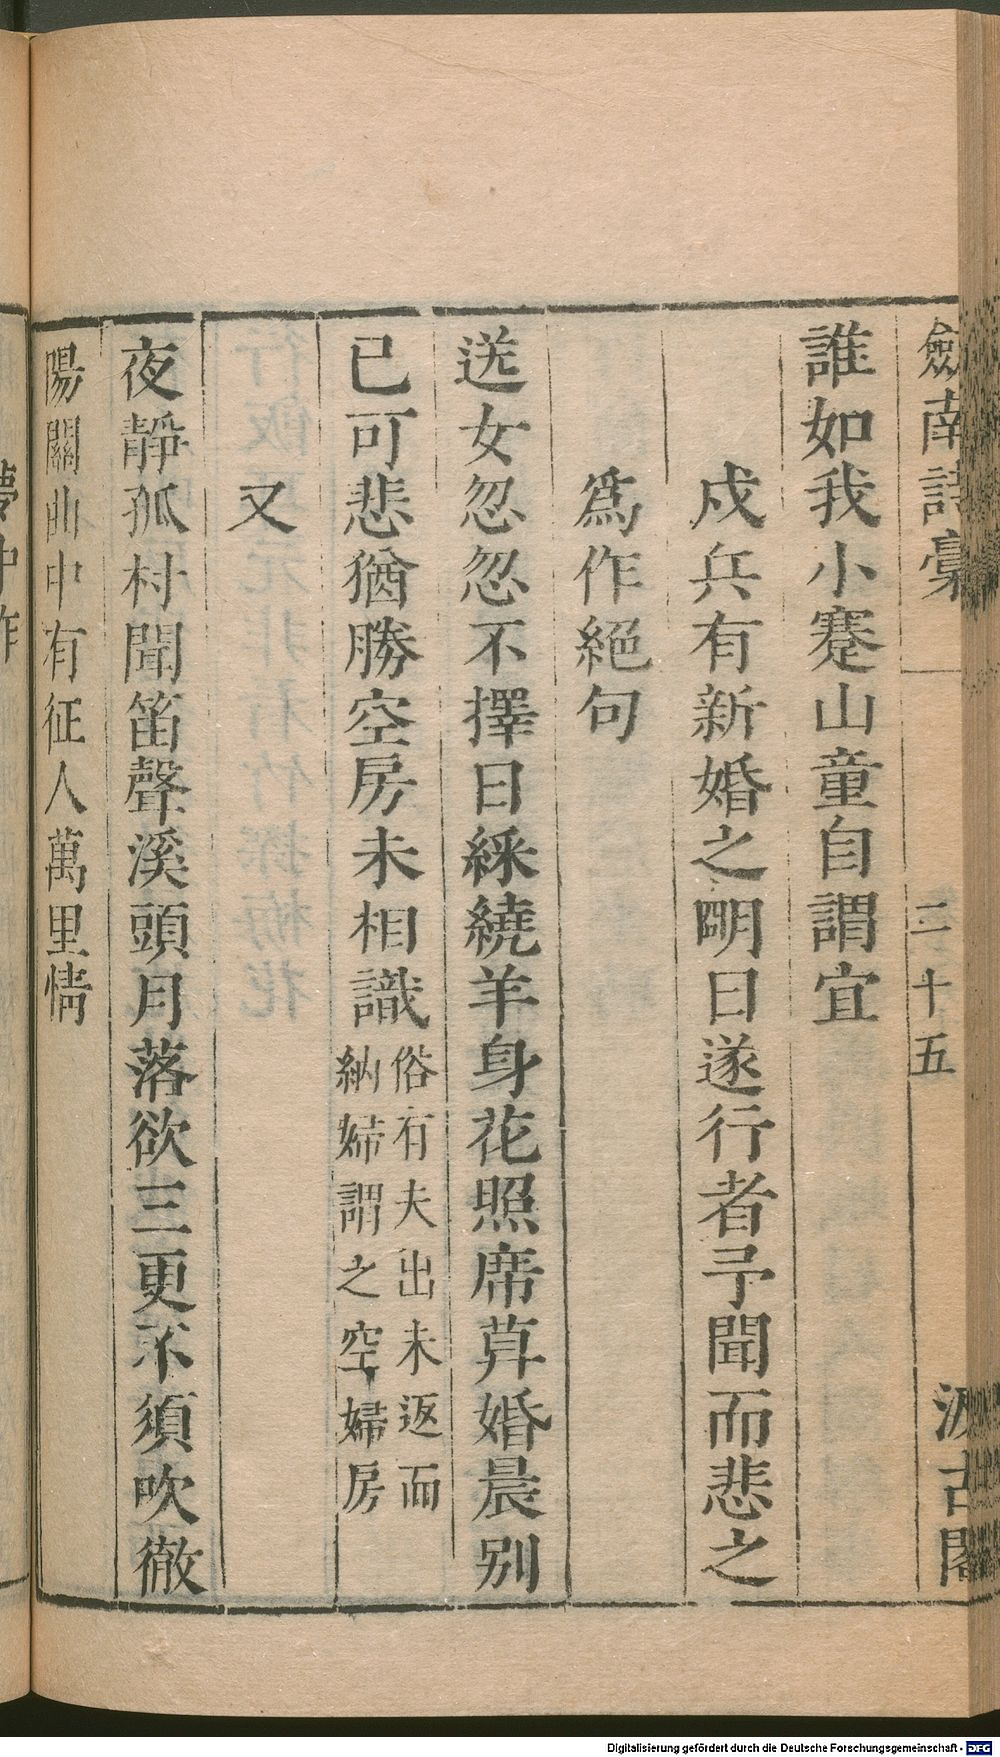 劍南詩稾 二十五 汲古閣
誰如我小蹇山童自謂宜
戍兵有新婚之明日遂行者予聞而悲之
爲作絕句
送女忽忽不擇日綵繞羊身花照席算婚晨别
已可悲猶勝空房未相識俗有夫出未返而
納婦謂之空婦房
又
夜靜孤村聞笛聲溪頭月落欲三更不須吹徹
陽關曲中有征人萬里情
夢中作
Digitalisierung gefördert durch die Deutsche Forschungsgemeinschaft - DFG